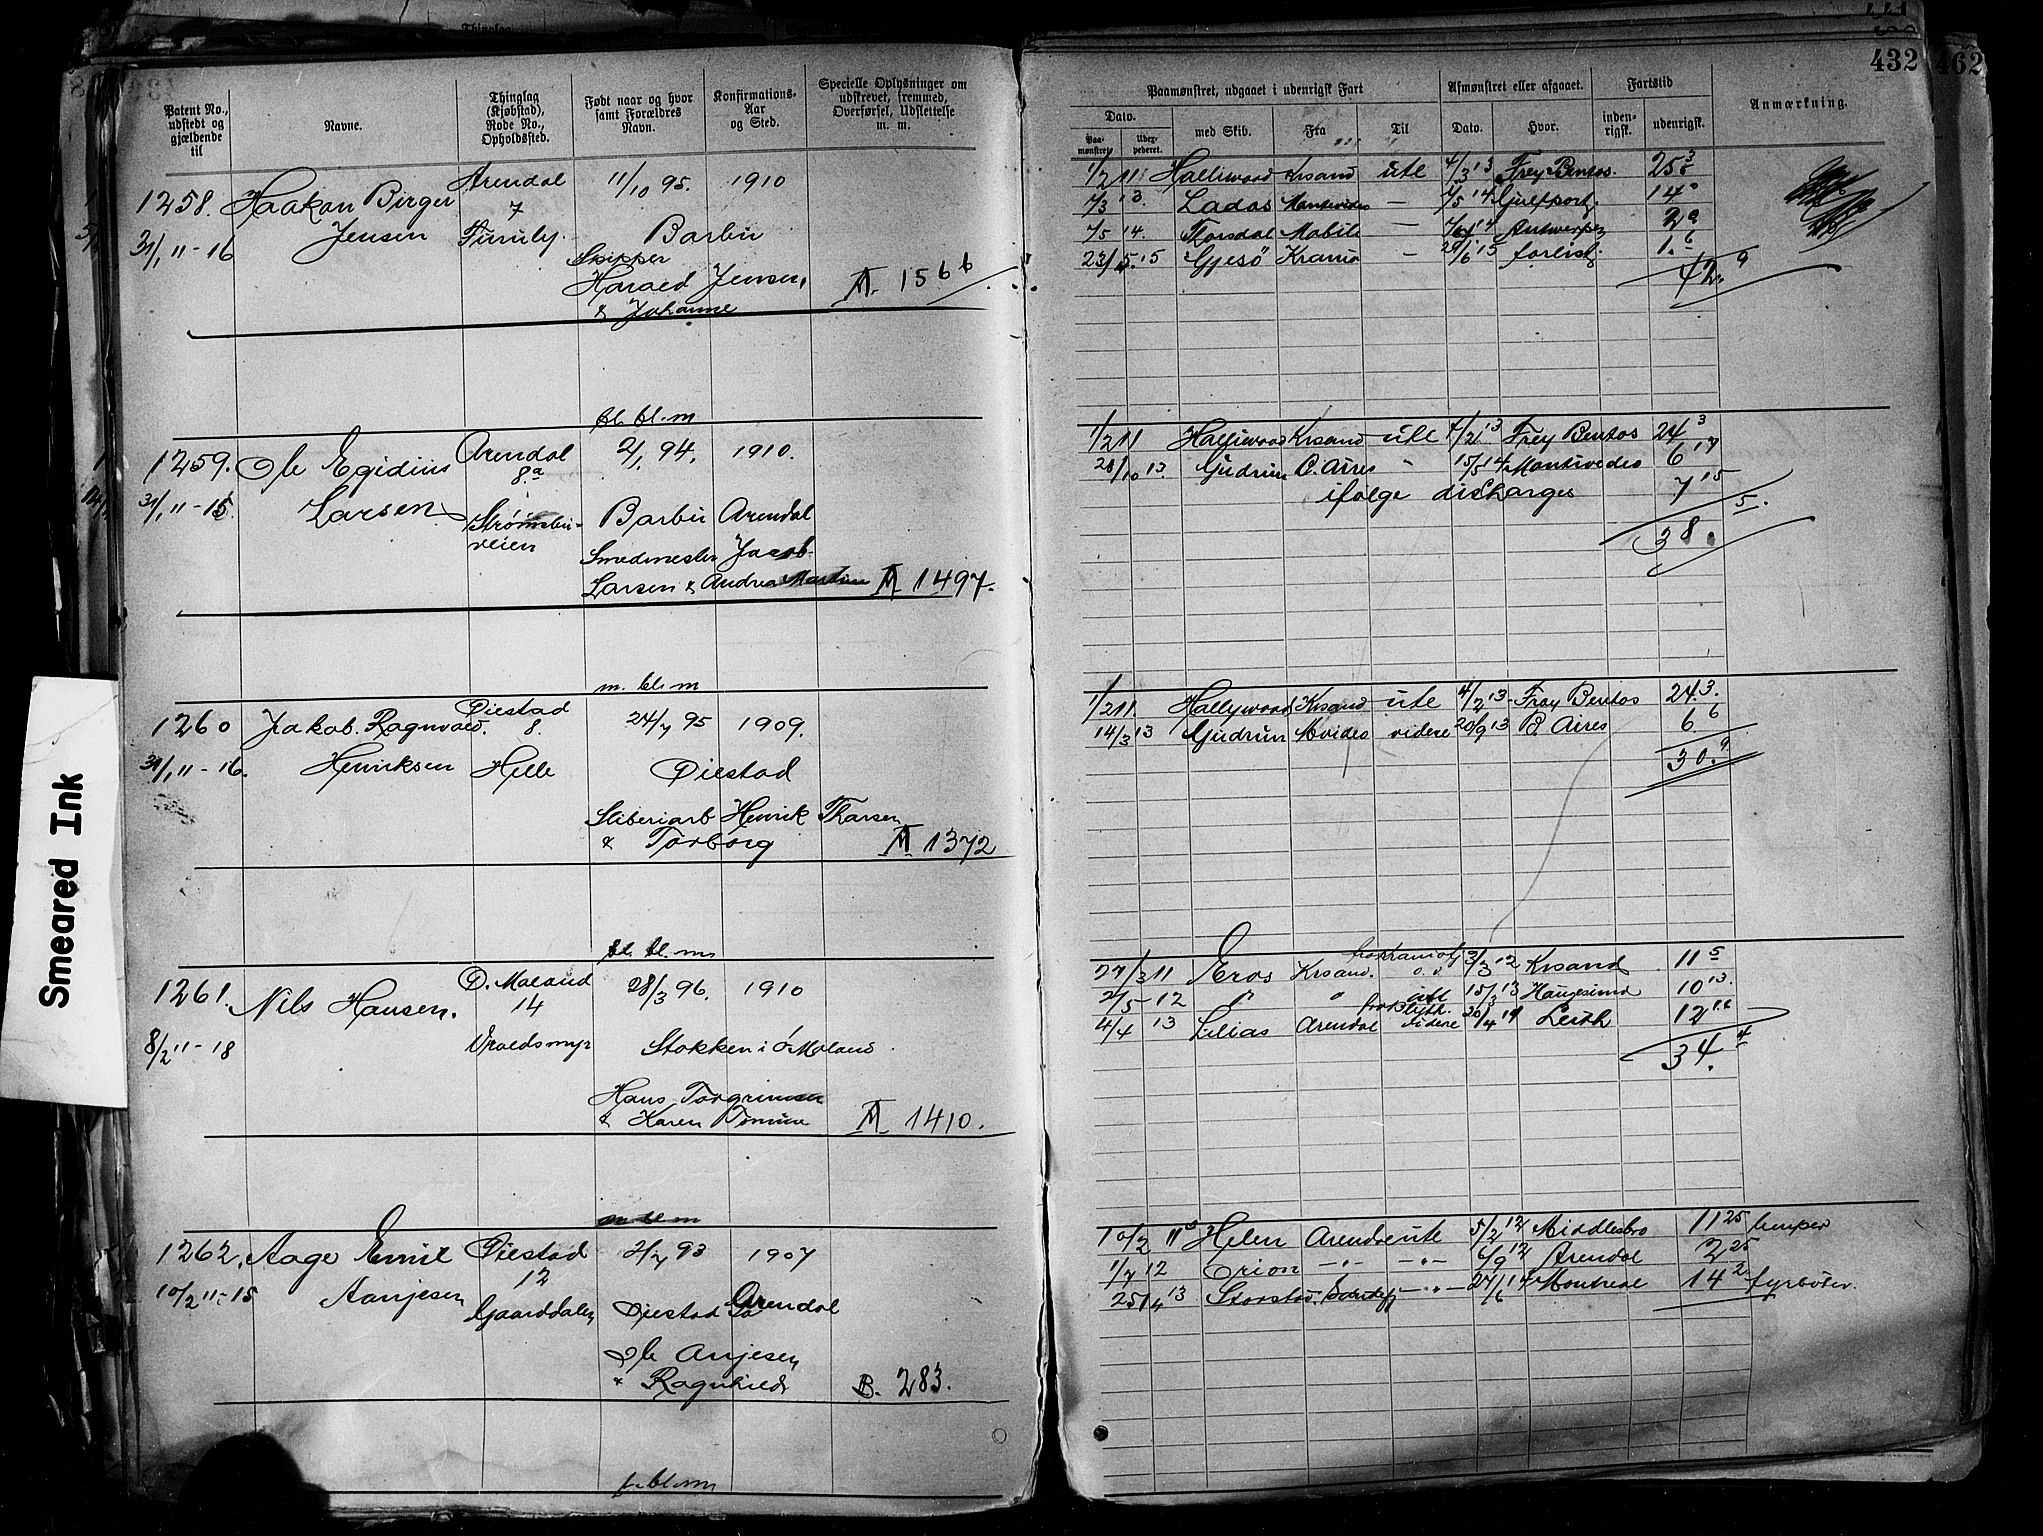 432
462
Smeared Ink
Patent No., udstedt og gjældende til
Navne.
Thinglag (Kjøbstad), Rode No., Opholdssted.
Født naar og hvor samt Forældres Navn.
Konfirmations-Aar og Sted.
Specielle Oplysninger om udskrevet, fremmed, Overførsel, Udslettelse m. m.
Paamønstret, udgaaet i udenrigsk Fart
Afmønstret eller afgaaet.
Fartstid
Anmærkning.
Dato.
med Skib.
Fra
Til
Dato.
Hvor.
inden-rigsk.
udenrigsk.
Paa-mønstret
Udex-pederet.
1258. Haakon Birger Arendal 11/10 95. 1910
7
31/1 11-16 Jensen Barbu
Skipper
Harald Jensen,
& Johanne
A. 1566
1/2 11 Halliwood Krsand ute 4/3 13 Frey Bentos. 25 3
7/3 13. Ladas Montevideo — 7/5 14 Gulfport 14
7/5 14. Thorsdal Mobile — Antwerpen
Gjesö forlist
42. 9
bl. bl. m
1259. Ole Egidius Arendal 2/1 94. 1910.
8.a
31/1 11-15. Larsen Strømsbu-veien Barbu Arendal
Smedmester Jacob
Larsen & Andrea
A 1497.
1/2 11 Halliwood Krsand ute 4/2 13 Frey Bentos 24 3
28/10 13. Gudrun B. Aires " 15/5 14 Montevedeo 6 17
ifølge discharges 7 15
38. 5.
m. bl. m
1260 Jakob Ragnvald. Øiestad 24/7 95 1909.
8.
31/1 11-16. Henriksen Helle Øiestad
Sliberiarb Henrik Tharsen
& Torborg
A 1372
1/2 11 Hallywood Krsand ute 4/2 13 Fray Bentos 24 3.
14/3 13 Gudrun Mvideo videre 20/9 13 B Aires 6 6
30. 9
bl. bl. m
1261. Nils Hansen. Ø. Moland 28/3 96. 1910
14
8/2 11-18 Stokken i Ø Moland
Hans Torgrimsen
& Karen
A 1410.
27/3 11 Eros Krsand. 3/3 12 Krsand 11 5
2/5-12 " " ute 15/3 13 Haugesund 10 13.
4/4 13 Lilias Arendal videre Leith
34. 4
1262. Aage Emil Øiestad 2/7 93 1907
12
10/2 11-15 Aanjesen Gaarddalen Øiestad Arendal
Ole Anjesen
& Ragnhild
B. 283.
10/2 11 Helen Arendal ute 5/2 12 Middlesbro 11 25 lemper
1/7 12 Orion —"— —"— 6/9 12 Arendal 2 25
25/4 13 Storstad —"— Montreal 14 2 fyrbøter.
bl. m